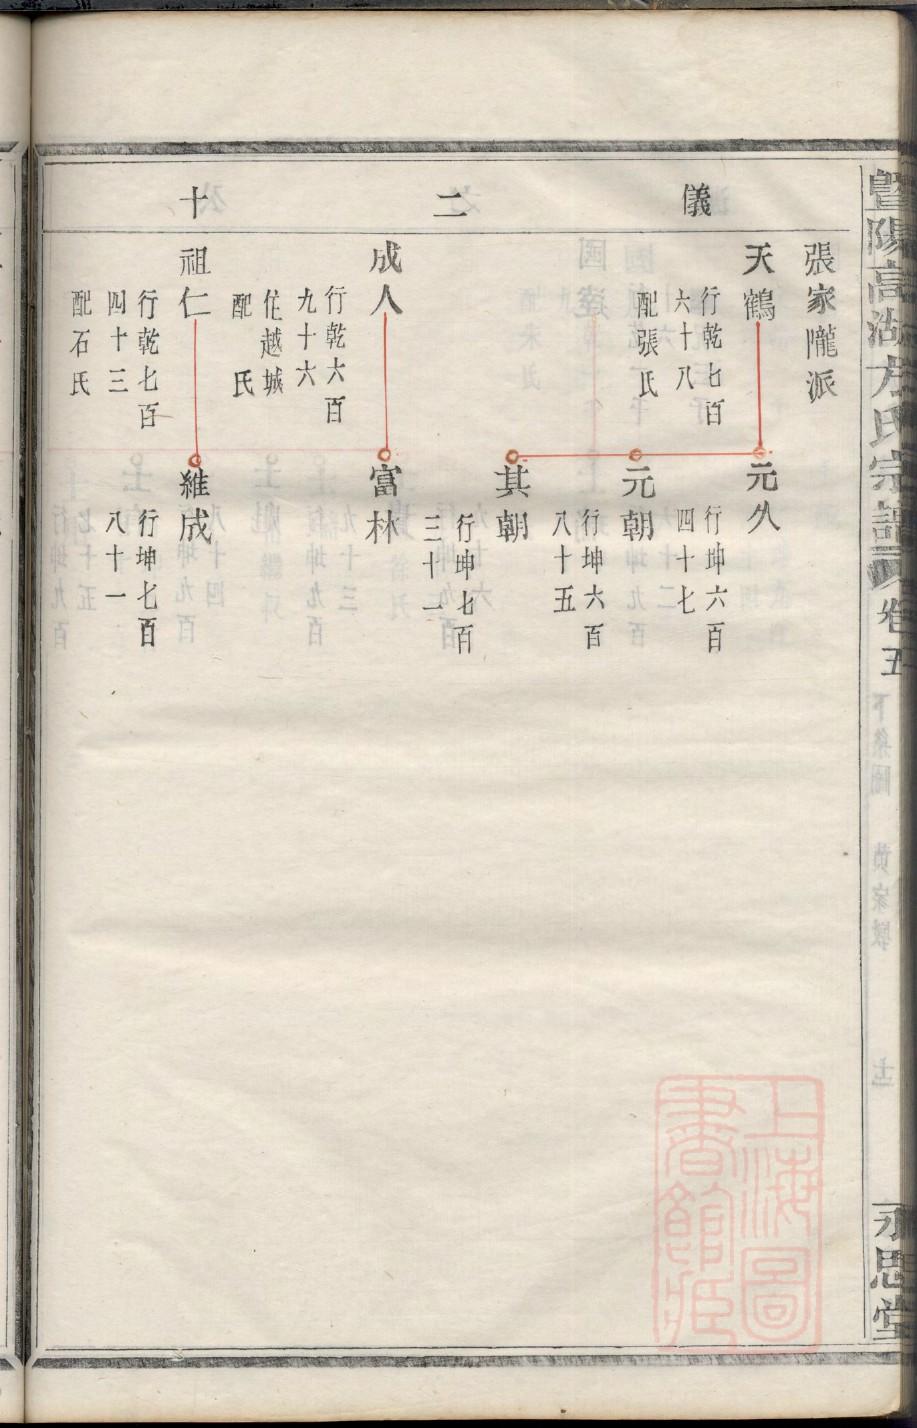 暨陽高湖方氏宗譜
卷五
永思堂
儀二十
張家隴派
天鶴
行乾七百
六十八
配張氏
元久
行坤六百
四十七
元朝
行坤六百
八十五
其朝
行坤七百
三十一
成人
行乾六百
九十六
住越城
配 氏
富林
祖仁
行乾七百
四十三
配石氏
維成
行坤七百
八十一
上海圖
書館藏